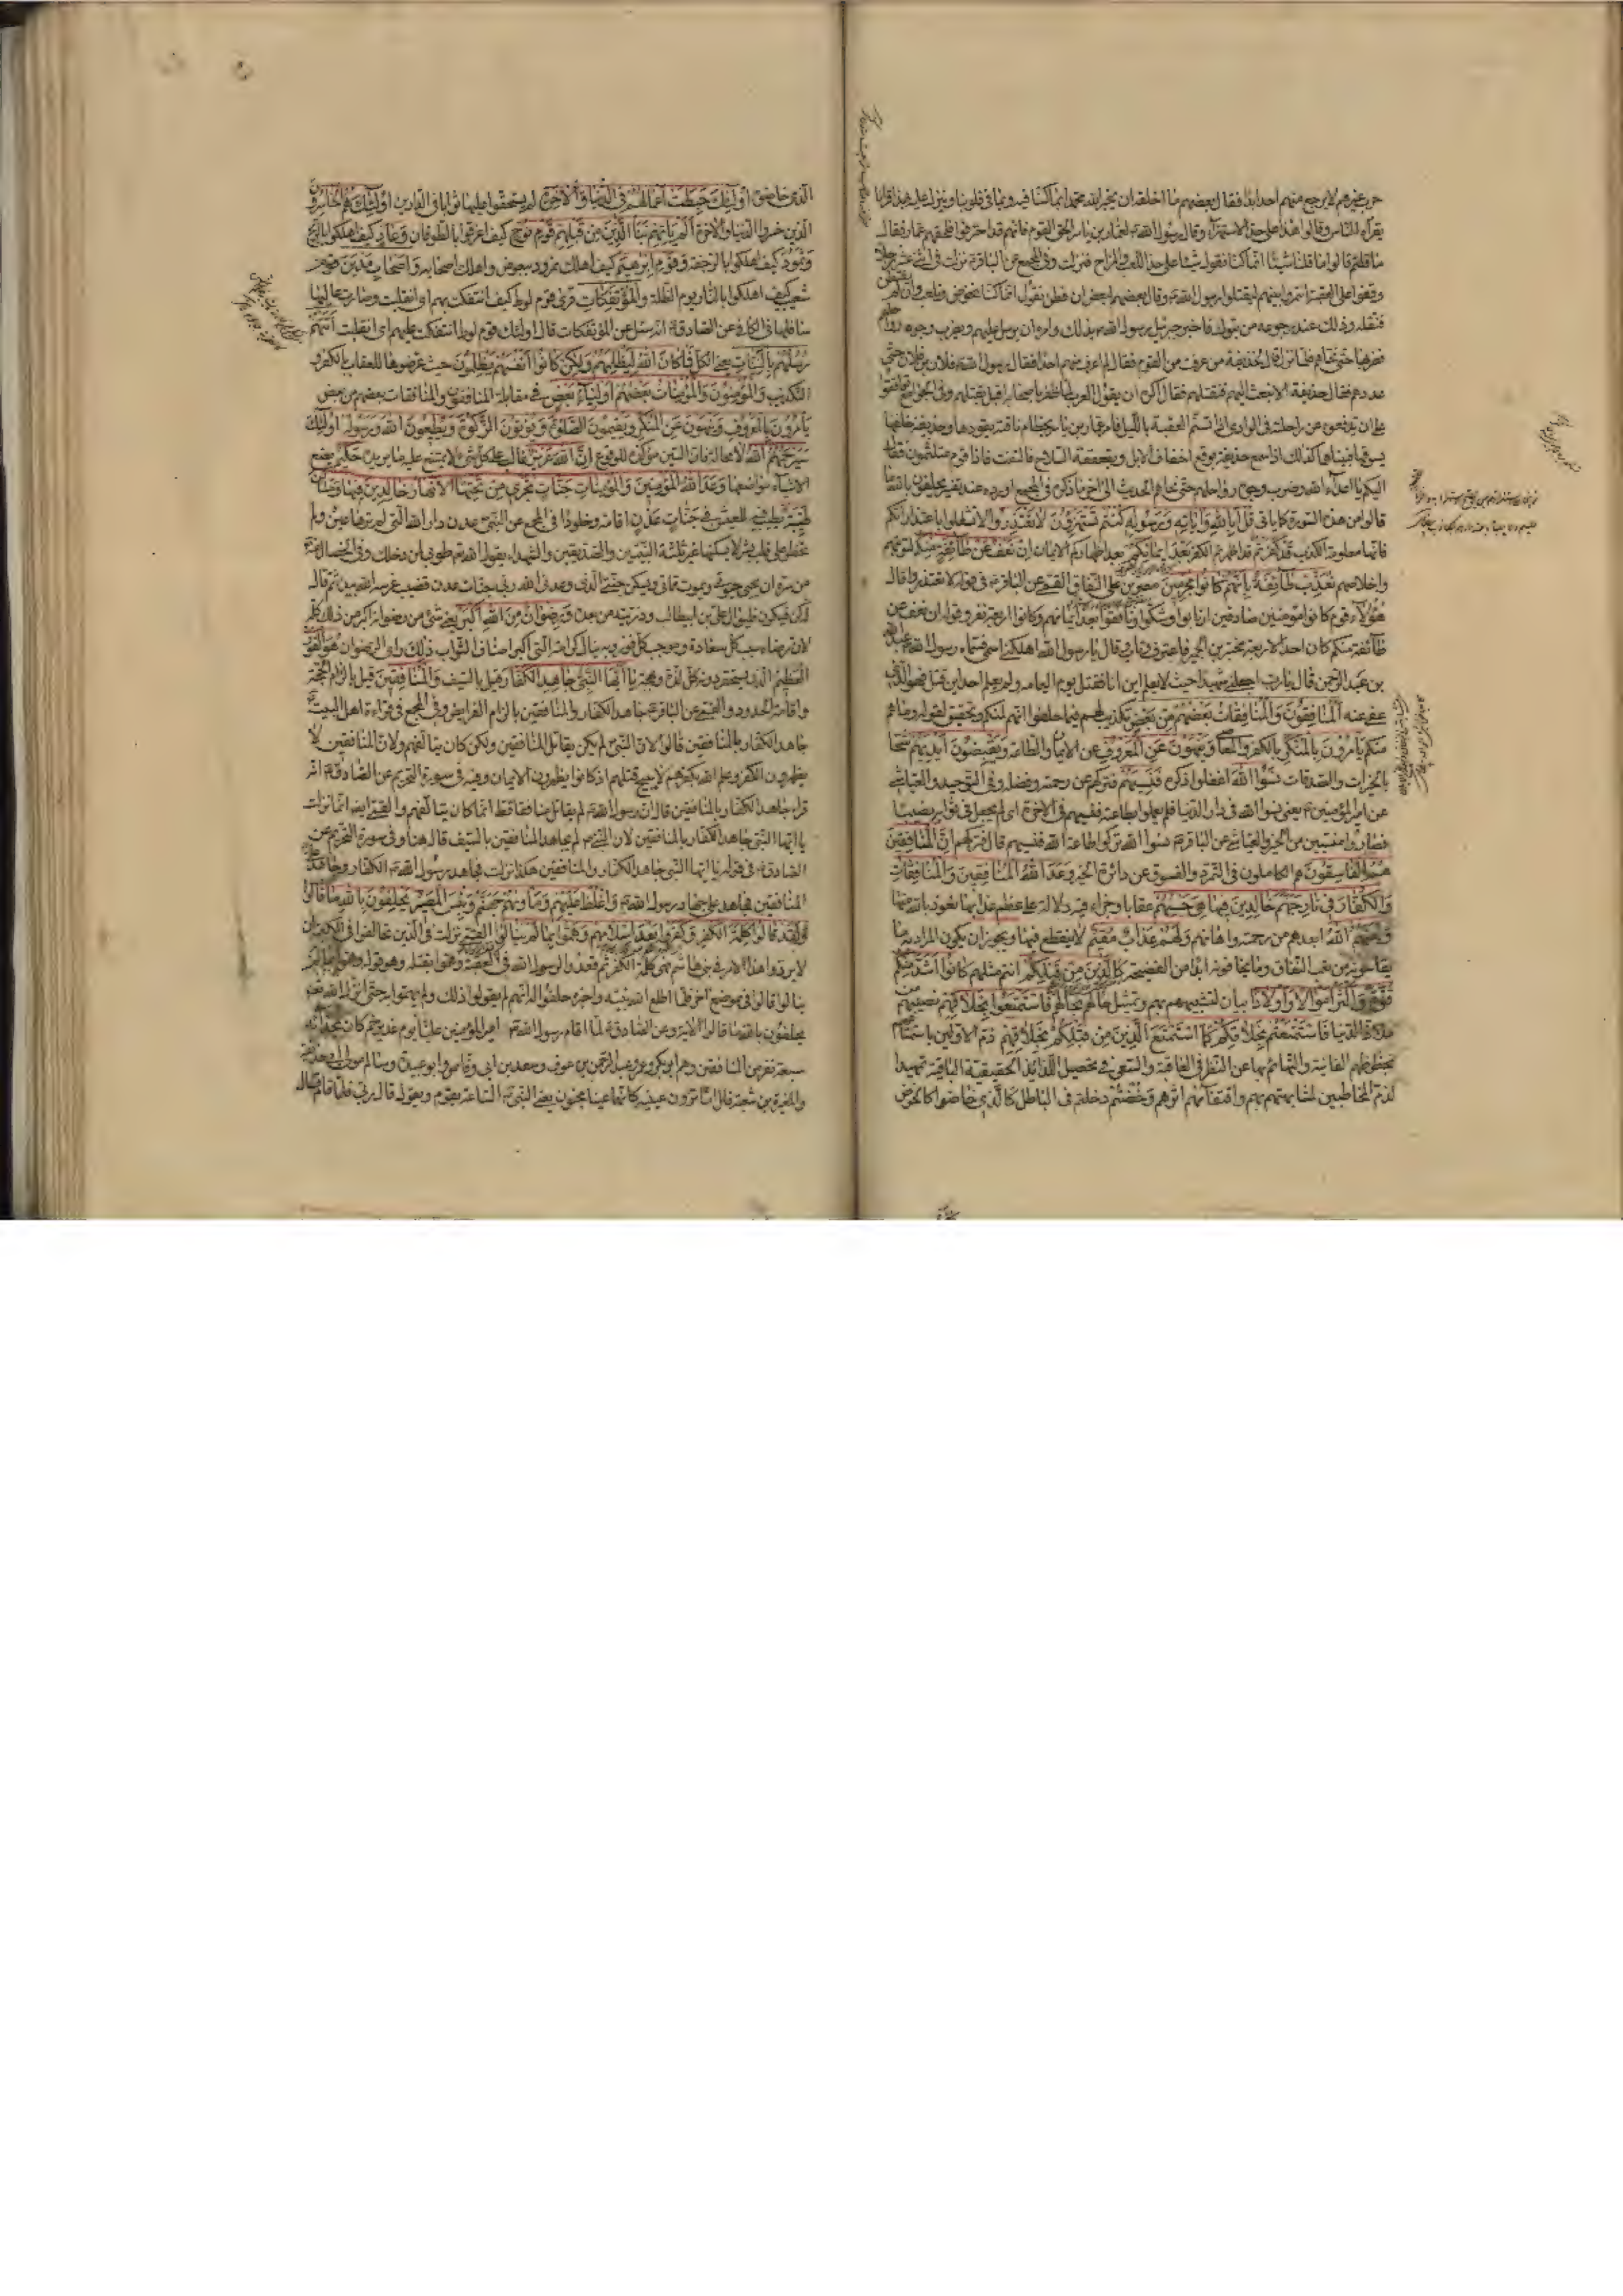 حرب غيرهم لا يرجع منهم احد ابدا فقال بعضهم ما اخلقه ان يخبر الله محمدا بما كنا فيه وبما في قلوبنا وينزل عليه بهذا قرانا
يقرأه الناس وقالوا هذا على حد الاستهزاء وقال رسول الله لعمار بن ياسر الحق القوم فانهم قد احترقوا فلحقهم عمار فقال
ما قلتم قالوا ما قلنا شيئا انما كنا نقول شيئا على حد اللعب والمزاح فنزلت وفي المجمع عن الباقر نزلت في اثني عشر رجلا
وقفوا على العقبة ائتمروا بينهم ليقتلوا رسول الله وقال بعضهم لبعض ان فطن نقول انما كنا نخوض ونلعب وان لم يفطن
نقتله وذلك عند رجوعه من تبوك فاخبر جبرئيل رسول الله بذلك وامره ان يرسل اليهم ويضرب وجوه رواحلهم
فضربها حتى نحاهم فلما نزل قال لحذيفة من عرفت من القوم فقال لم اعرف منهم احدا فقال رسول الله فلان بن فلان حتى
عددهم فقال حذيفة الا تبعث اليهم فتقتلهم فقال اكره ان يقول العرب لما ظفر باصحابه اقبل يقتلهم وفي
على ان يدفعوه عن راحلته في الوادي اذا تسنم العقبة بالليل فامر عمار بن ياسر بخطام ناقته يقودها وحذيفة خلفها
يسوقها فبيناهما كذلك اذا سمع حذيفة بوقع اخفاف الابل وبقعقعة السلاح فالتفت فاذا قوم متلثمون فقال
اليكم يا اعداء الله وضرب وجوه رواحلهم حتى نحاهم الحديث الى اخر ما ذكره في المجمع اورده عند تفسير يحلفون بالله ما
قالوا من هذه السورة كما ياتي قل ابالله واياته ورسوله كنتم تستهزؤن لا تعتذروا لا تشتغلوا باعتذاراتكم
فانها معلومة الكذب قد كفرتم قد اظهرتم الكفر بعد ايمانكم بعد اظهاركم الايمان ان نعف عن طائفة منكم لتوبتهم
واخلاصهم نعذب طائفة بانهم كانوا مجرمين مصرين على النفاق القمي عن الباقر في قوله لا تعتذروا قال
هؤلاء قوم كانوا مؤمنين صادقين ارتابوا وشكوا ونافقوا بعد ايمانهم وكانوا اربعة نفر وقوله ان نعف عن
طائفة منكم كان احد الاربعة مختبر بن الحمير فاعترف وتاب وقال يا رسول الله اهلكني اسمي فسماه رسول الله عبد الله
بن عبد الرحمن فقال يا رب اجعلني شهيدا حيث لا يعلم اين انا فقتل يوم اليمامة ولم يعلم احد اين قتل فهو الذي
عفي عنه المنافقون والمنافقات بعضهم من بعض تكذيب لهم فيما حلفوا انهم لمنكم وتحقيق لقوله وما هم
منكم يأمرون بالمنكر بالكفر والمعاصي وينهون عن المعروف عن الايمان والطاعة ويقبضون ايديهم شحا
بالخيرات والصدقات نسوا الله اغفلوا ذكره فنسيهم فتركهم عن رحمته وفضله وفي التوحيد والعياشي
عن امير المؤمنين يعني نسوا الله في دار الدنيا فلم يعملوا بطاعته فنسيهم في الاخرة اي لم يجعل في ثوابه نصيبا
فصاروا منسيين من الخير والعياشي عن الباقر نسوا الله تركوا طاعة الله فنسيهم قال فتركهم ان المنافقين
هم الفاسقون هم الكاملون في التمرد والفسوق عن دائرة الخير وعد الله المنافقين والمنافقات
والكفار نار جهنم خالدين فيها هي حسبهم عقابا وجزاء فيه دلالة على عظم عذابها نعوذ بالله منها
ولعنهم الله ابعدهم من رحمته واهانهم ولهم عذاب مقيم لا ينقطع فيها ويجوز ان يكون المراد به ما
يقاسونه من تعب النفاق وما يخافونه ابدا من الفضيحة كالذين من قبلكم انتم مثلهم كانوا اشد منكم
قوة واكثر اموالا واولادا بيان لتشبيههم بهم وتمثيل حالهم بحالهم فاستمتعوا بخلاقهم نصيبهم من
ملاذ الدنيا فاستمتعتم بخلاقكم كما استمتع الذين من قبلكم بخلاقهم ذم الاولين باستمتاعهم
بحظوظهم الفانية والتهائهم بها عن النظر في العاقبة والسعي في تحصيل اللذائذ الحقيقية الباقية تمهيدا
لذم المخاطبين لمشابهتهم بهم واقتفائهم اثرهم وخضتم دخلتم في الباطل كالذي خاضوا كالخوض
الذي خاضوه اولئك حبطت اعمالهم في الدنيا والاخرة لم يستحقوا عليها ثوابا في الدارين واولئك هم الخاسرون
الذين خسروا الدنيا والاخرة الم ياتهم نبأ الذين من قبلهم قوم نوح كيف اغرقوا بالطوفان وعاد كيف اهلكوا بالريح
وثمود كيف اهلكوا بالرجفة وقوم ابرهيم كيف اهلك نمرود ببعوض واهلك اصحابه واصحاب مدين قوم
شعيب كيف اهلكوا بالنار يوم الظلة والمؤتفكات قرى قوم لوط كيف ائتفكت بهم اي انقلبت وصارت عاليها
سافلها في الكافي عن الصادق انه سئل عن المؤتفكات قال اولئك قوم لوط ائتفكت عليهم اي انقلبت اتتهم
رسلهم بالبينات فما كان الله ليظلمهم ولكن كانوا انفسهم يظلمون حيث عرضوها للعقاب بالكفر و
التكذيب والمؤمنون والمؤمنات بعضهم اولياء بعض في مقابلة المنافقون والمنافقات بعضهم من بعض
يأمرون بالمعروف وينهون عن المنكر ويقيمون الصلوة ويؤتون الزكوة ويطيعون الله ورسوله اولئك
سيرحمهم الله لا محالة فان السين مؤكدة للوقوع ان الله عزيز غالب على كل شيء لا يمتنع عليه ما يريده حكيم يضع
الاشياء مواضعها وعد الله المؤمنين والمؤمنات جنات تجري من تحتها الانهار خالدين فيها ومساكن
طيبة يطيب فيها العيش في جنات عدن اقامة وخلود في المجمع عن النبي عدن دار الله التي لم ترها عين ولم
تخطر على قلب بشر لا يسكنها غير ثلثة النبيين والصديقين والشهداء يقول الله طوبى لمن دخلك وفي الخصال عنه
من سره ان يحيى حيوتي ويموت مماتي ويسكن جنتي التي وعدني الله ربي جنات عدن قضيب غرسه الله بيده ثم قال له
كن فيكون فليوال علي بن ابيطالب وذريته من بعده ورضوان من الله اكبر يعني شيء من رضوانه اكبر من ذلك كله
لان رضاه سبب كل سعادة وموجب كل فوز وبه ينال كرامته التي اكبر اصناف الثواب ذلك الرضوان هو الفوز
العظيم الذي يستحقر دونه كل لذة وبهجة يا ايها النبي جاهد الكفار قيل بالسيف والمنافقين قيل بالزام الحجة
واقامة الحدود والقمي عن الباقر جاهد الكفار والمنافقين بالزام الفرايض وفي المجمع في قراءة اهل البيت
جاهد الكفار بالمنافقين قالوا لان النبي لم يكن يقاتل المنافقين ولكن كان يتالفهم ولان المنافقين لا
يظهرون الكفر وعلم الله بكفرهم لا يبيح قتلهم اذ كانوا يظهرون الايمان وفيه في سورة التحريم عن الصادق انه
قرأ جاهد الكفار بالمنافقين قال ان رسول الله لم يقاتل منافقا قط انما كان يتالفهم والقمي ايضا انما نزلت
يا ايها النبي جاهد الكفار بالمنافقين لان النبي لم يجاهد المنافقين بالسيف قال هنا وفي سورة التحريم عن
الصادق في قوله يا ايها النبي جاهد الكفار والمنافقين هكذا نزلت فجاهد رسول الله الكفار وجاهد علي
المنافقين فجاهد علي جهاد رسول الله واغلظ عليهم ومأويهم جهنم وبئس المصير يحلفون بالله ما قالوا
ولقد قالوا كلمة الكفر وكفروا بعد اسلامهم وهموا بما لم ينالوا القمي نزلت في الذين تحالفوا في الكعبة ان
لا يردوا هذا الامر في بني هاشم فهي كلمة الكفر ثم قعدوا لرسول الله في العقبة وهموا بقتله وهو قوله وهموا بما لم
ينالوا قال وفي موضع اخر فلما اطلع الله نبيه واخبره حلفوا له انهم لم يقولوا ذلك ولم يهموا به حتى انزل الله
يحلفون بالله ما قالوا الاية وعن الصادق لما اقام رسول الله امير المؤمنين عليا يوم غدير خم كان بحذائه
سبعة نفر من المنافقين وهم ابو بكر وعمر وعبد الرحمن بن عوف وسعد بن ابي وقاص وابو عبيدة وسالم مولى ابي حذيفة
والمغيرة بن شعبة قال اما ترون عينيه كانهما عينا مجنون يعني النبي الساعة يقوم ويقول قال لي ربي فلما قام قال